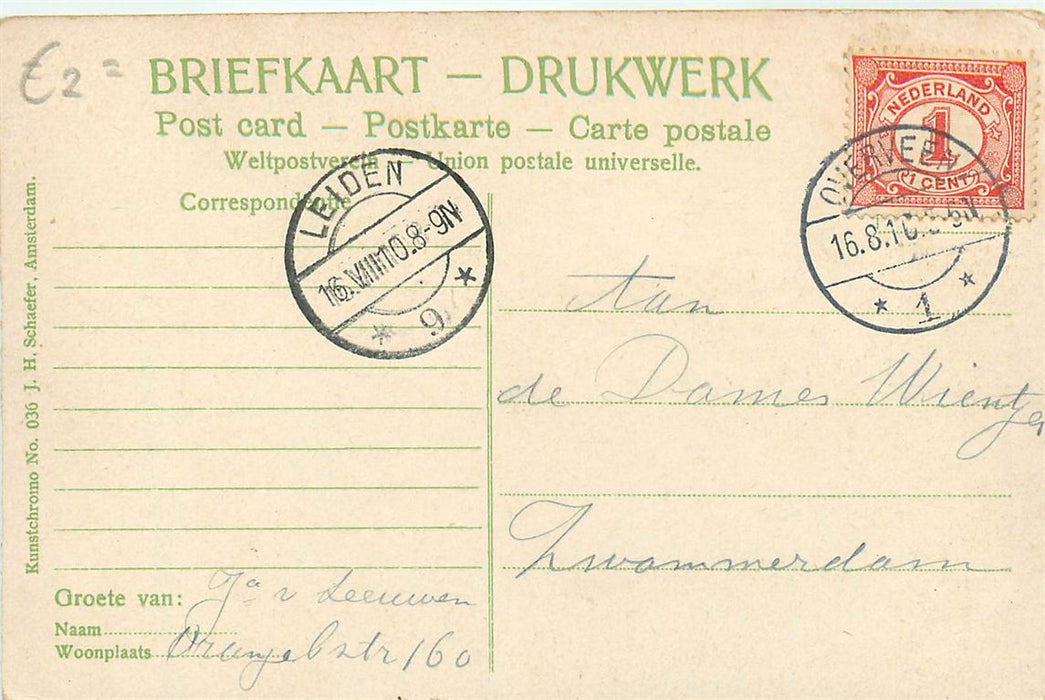 £ 2 =
BRIEFKAART — DRUKWERK
Post card — Postkarte — Carte postale
Weltpostverein — Union postale universelle.
Correspondentie
NEDERLAND
1
1 CENT
OVERVEEN
16.8.10
1
LEIDEN
16.VIII.10.8-9N
9
Aan
de Dames Wientjes
Zwammerdam
Groete van: Ja v Leeuwen
Naam
Woonplaats Oranjebstr 160
Kunstchromo No. 036 J. H. Schaefer, Amsterdam.